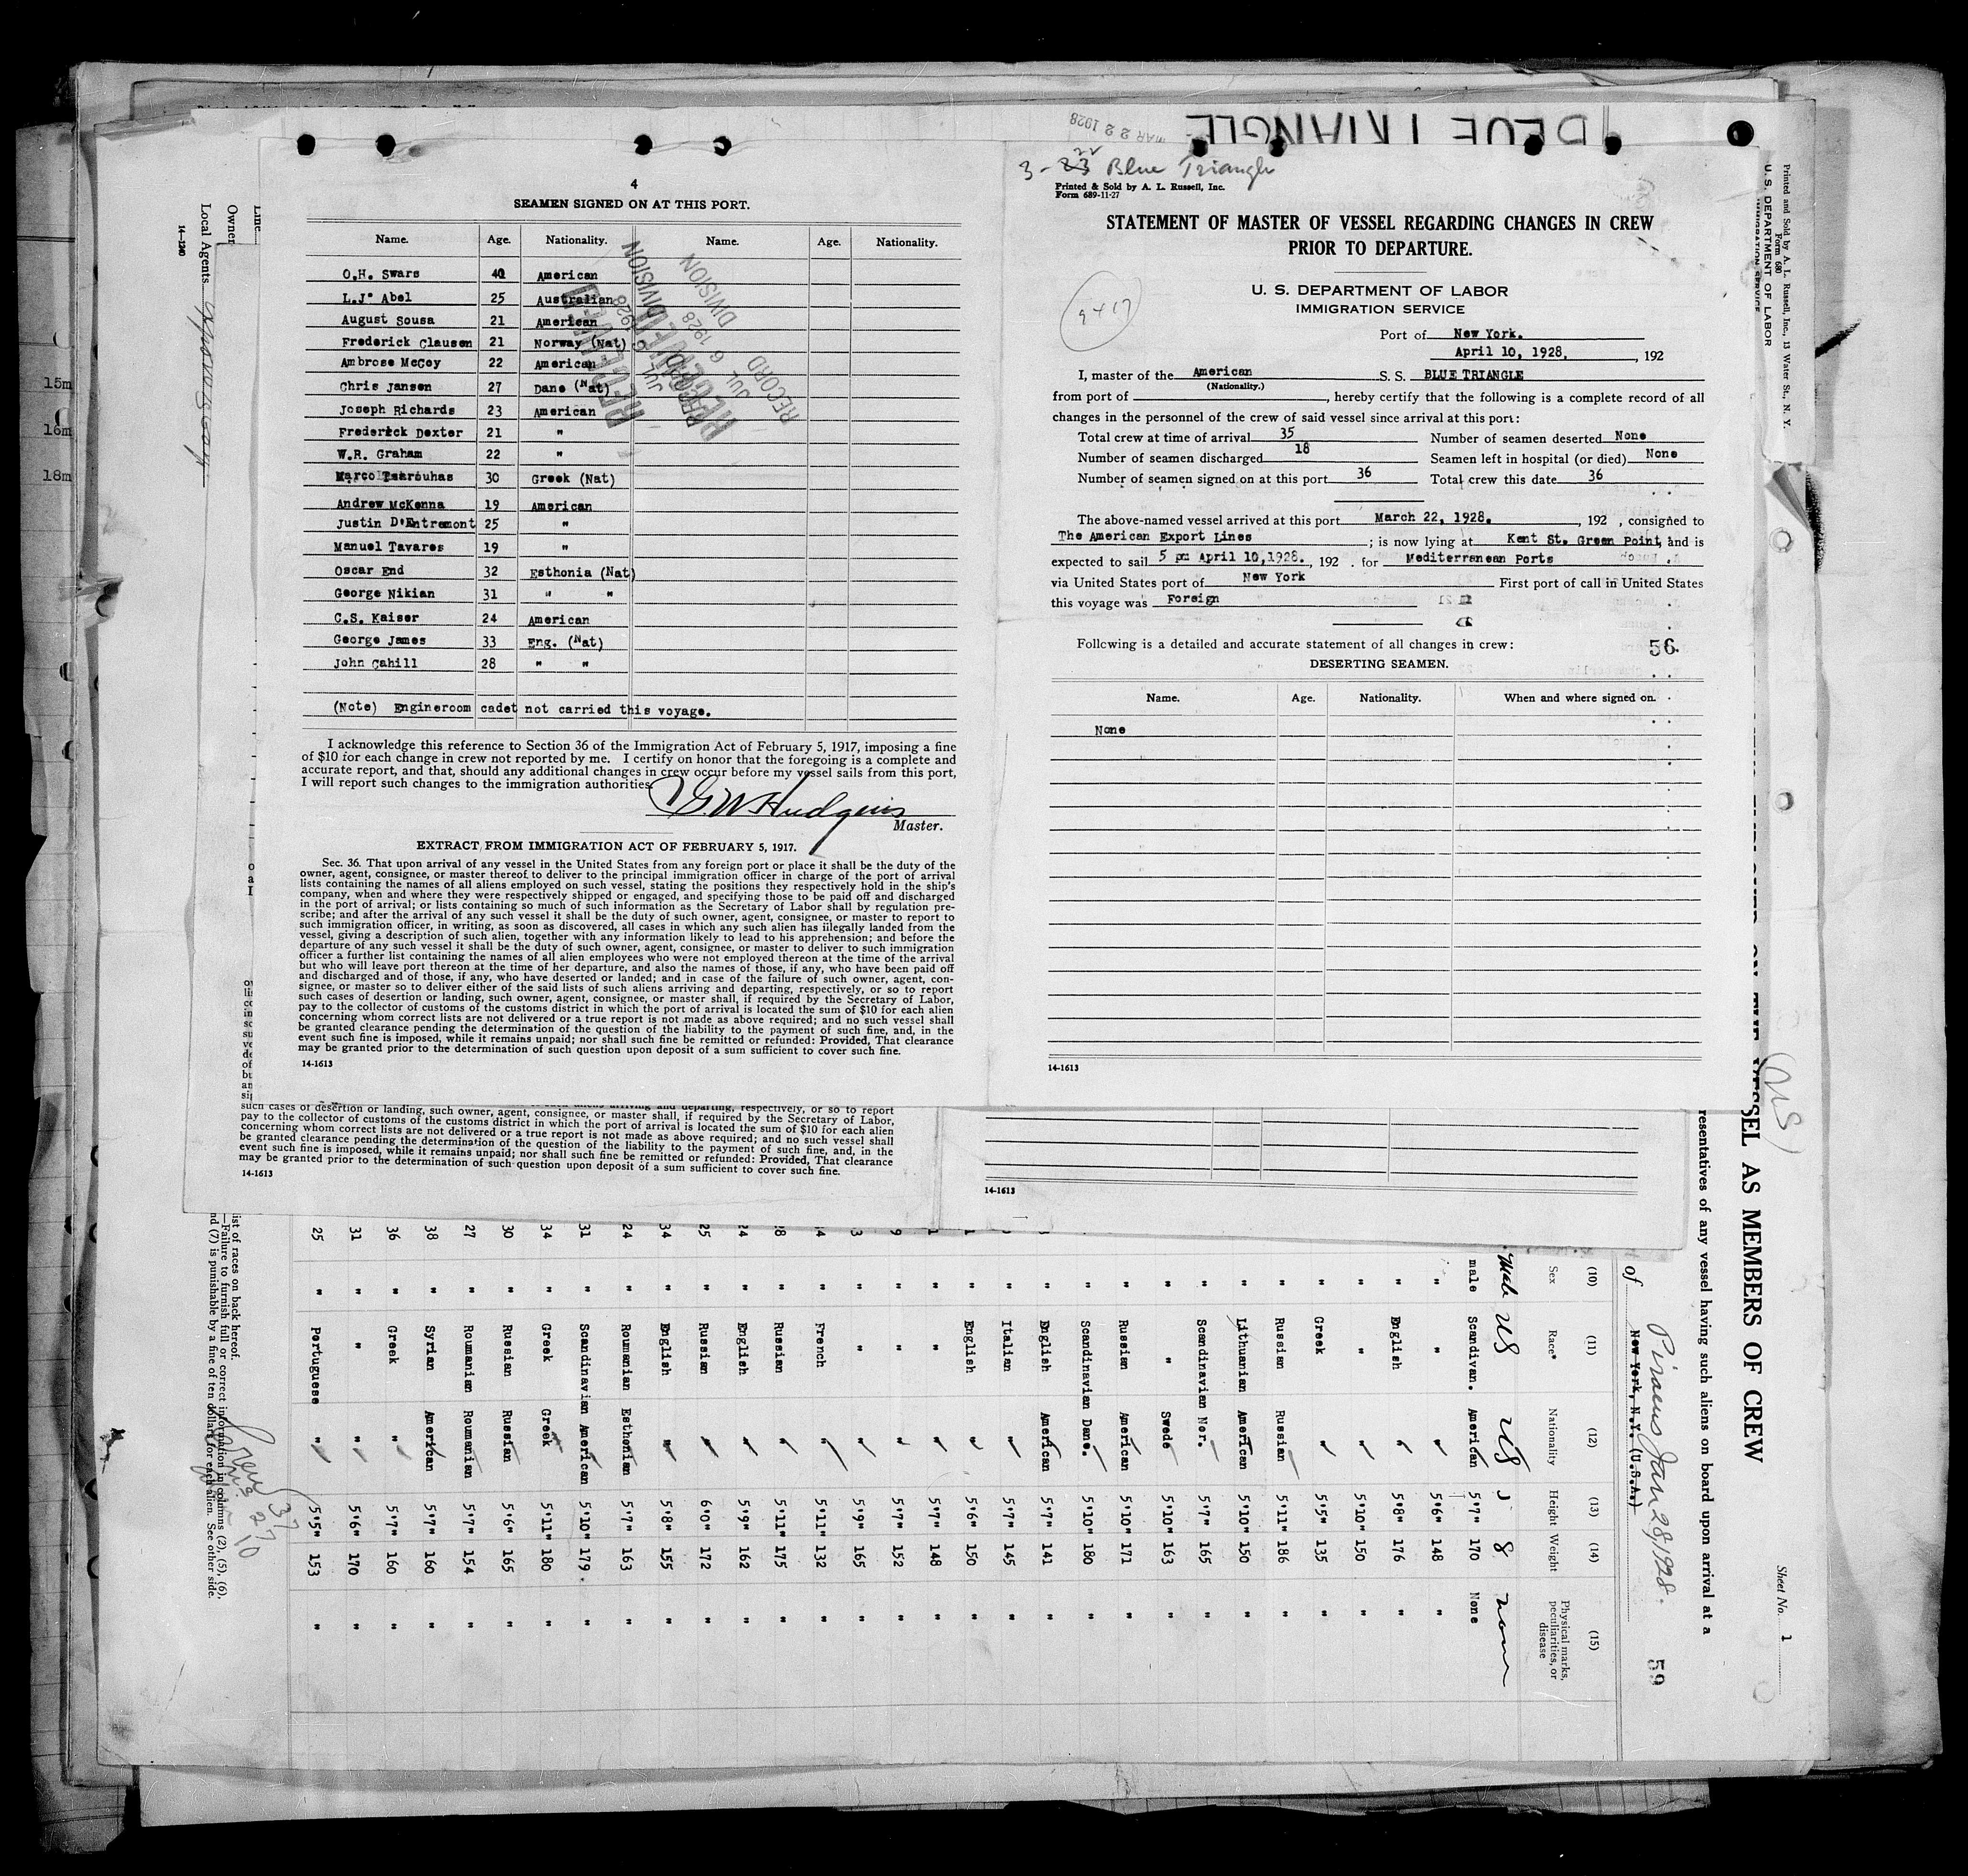 4
SEAMEN SIGNED ON AT THIS PORT.
Name. Age. Nationality. Name. Age. Nationality.
O.H. Swars 40 American
L.J. Abel 25 Australian
August Sousa 21 American
Frederick Clausen 21 Norway (Nat)
Ambrose McCoy 22 American
Chris Jansen 27 Dane (Nat)
Joseph Richards 23 American
Frederick Dexter 21 "
W.R. Graham 22 "
Marco Tsarouhas 30 Greek (Nat)
Andrew McKenna 19 American
Justin D'Entremont 25 "
Manuel Tavares 19 "
Oscar End 32 Esthonia (Nat)
George Nikian 31 " "
C.S. Kaiser 24 American
George James 33 Eng. (Nat)
John Cahill 28 " "
(Note) Engineroom cadet not carried this voyage.
RECEIVED
JUL 6 1928
RECORD DIVISION
I acknowledge this reference to Section 36 of the Immigration Act of February 5, 1917, imposing a fine
of $10 for each change in crew not reported by me. I certify on honor that the foregoing is a complete and
accurate report, and that, should any additional changes in crew occur before my vessel sails from this port,
I will report such changes to the immigration authorities.
G.W. Hudgins
Master.
EXTRACT FROM IMMIGRATION ACT OF FEBRUARY 5, 1917.
Sec. 36. That upon arrival of any vessel in the United States from any foreign port or place it shall be the duty of the
owner, agent, consignee, or master thereof to deliver to the principal immigration officer in charge of the port of arrival
lists containing the names of all aliens employed on such vessel, stating the positions they respectively hold in the ship's
company, when and where they were respectively shipped or engaged, and specifying those to be paid off and discharged
in the port of arrival; or lists containing so much of such information as the Secretary of Labor shall by regulation pre-
scribe; and after the arrival of any such vessel it shall be the duty of such owner, agent, consignee, or master to report to
such immigration officer, in writing, as soon as discovered, all cases in which any such alien has illegally landed from the
vessel, giving a description of such alien, together with any information likely to lead to his apprehension; and before the
departure of any such vessel it shall be the duty of such owner, agent, consignee, or master to deliver to such immigration
officer a further list containing the names of all alien employees who were not employed thereon at the time of the arrival
but who will leave port thereon at the time of her departure, and also the names of those, if any, who have been paid off
and discharged and of those, if any, who have deserted or landed; and in case of the failure of such owner, agent, con-
signee, or master so to deliver either of the said lists of such aliens arriving and departing, respectively, or so to report
such cases of desertion or landing, such owner, agent, consignee, or master shall, if required by the Secretary of Labor,
pay to the collector of customs of the customs district in which the port of arrival is located the sum of $10 for each alien
concerning whom correct lists are not delivered or a true report is not made as above required; and no such vessel shall
be granted clearance pending the determination of the question of the liability to the payment of such fine, and, in the
event such fine is imposed, while it remains unpaid; nor shall such fine be remitted or refunded: Provided, That clearance
may be granted prior to the determination of such question upon deposit of a sum sufficient to cover such fine.
14-1613
BLUE TRIANGLE
MAR 22 1928
3-23 22 Blue Triangle
Printed & Sold by A. L. Russell, Inc.
Form 689-11-27
STATEMENT OF MASTER OF VESSEL REGARDING CHANGES IN CREW
PRIOR TO DEPARTURE.
U. S. DEPARTMENT OF LABOR
IMMIGRATION SERVICE
9417
Port of New York.
April 10, 1928. , 192
I, master of the American S. S. BLUE TRIANGLE
(Nationality.)
from port of , hereby certify that the following is a complete record of all
changes in the personnel of the crew of said vessel since arrival at this port:
Total crew at time of arrival 35 Number of seamen deserted None
Number of seamen discharged 18 Seamen left in hospital (or died) None
Number of seamen signed on at this port 36 Total crew this date 36
The above-named vessel arrived at this port March 22, 1928. , 192 , consigned to
The American Export Lines ; is now lying at Kent St. Green Point, and is
expected to sail 5 pm April 10,1928. , 192 . for Mediterranean Ports
via United States port of New York First port of call in United States
this voyage was Foreign
Following is a detailed and accurate statement of all changes in crew:
56
DESERTING SEAMEN.
Name. Age. Nationality. When and where signed on.
None
14-1613
such cases of desertion or landing, such owner, agent, consignee, or master shall, if required by the Secretary of Labor,
pay to the collector of customs of the customs district in which the port of arrival is located the sum of $10 for each alien
concerning whom correct lists are not delivered or a true report is not made as above required; and no such vessel shall
be granted clearance pending the determination of the question of the liability to the payment of such fine, and, in the
event such fine is imposed, while it remains unpaid; nor shall such fine be remitted or refunded: Provided, That clearance
may be granted prior to the determination of such question upon deposit of a sum sufficient to cover such fine.
14-1613
14-1613
15m
16m
18m
Line
Owner
Local Agents
14-1240
Printed and Sold by A. L. Russell, Inc., 13 Water St., N. Y.
Form 680
U. S. DEPARTMENT OF LABOR
IMMIGRATION SERVICE
Sheet No. 1
VESSEL AS MEMBERS OF CREW
(US)
resentatives of any vessel having such aliens on board upon arrival at a
of New York, N.Y. (U.S.A.)
Piraeus Jan 28, 1928.
59
(10) (11) (12) (13) (14) (15)
Sex Race* Nationality Height Weight Physical marks, peculiarities, or disease
Male US US 5 8 None
male Scandivan. American 5'7" 170 None
" " " 5'6" 148 "
" English " 5'8" 176 "
" " " 5'10" 150 "
" Greek " 5'5" 135 "
" Russian Russian 5'11" 186 "
" Lithuanian American 5'10" 150 "
" Scandinavian Nor. 5'7" 165 "
" " Swede 5'10" 163 "
" Russian American 5'10" 171 "
" Scandinavian Dane. 5'10" 180 "
" English American 5'7" 141 "
" Italian " 5'7" 145 "
" English " 5'6" 150 "
" " " 5'7" 148 "
" " " 5'7" 152 "
" " " 5'9" 165 "
" French " 5'11" 132 "
" Russian " 5'11" 175 "
24 " English " 5'9" 162 "
25 " Russian " 6'0" 172 "
34 " English " 5'8" 155 "
24 " Roumanian Esthonian 5'7" 163 "
31 " Scandinavian American 5'10" 179. "
34 " Greek Greek 5'11" 180 "
30 " Russian Russian 5'6" 165 "
27 " Roumanian Roumanian 5'7" 154 "
38 " Syrian American 5'7" 160 "
36 " Greek " 5'7" 160 "
31 " " " 5'6" 170 "
25 " Portuguese " 5'5" 153 "
ist of races on back hereof.
—Failure to furnish full or correct information in columns (2), (5), (6),
nd (7) is punishable by a fine of ten dollars for each alien. See other side.
37
27
10